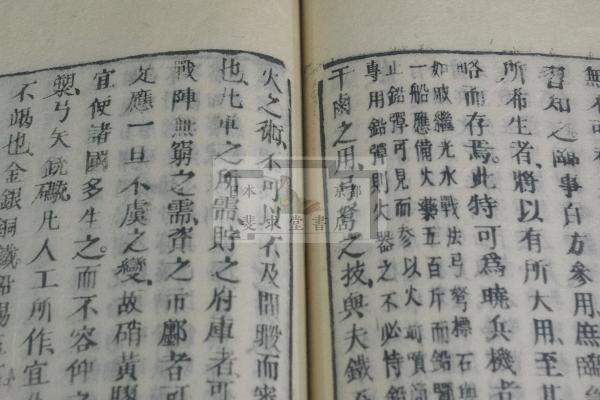 無不可
習知之師事百方參用、庶臨
所希生者、將以有所大用、至其
略而存焉、此特可爲曉兵機者
如戚繼光水戰法弓弩標石與
一船應備火藥五百斤而鉛彈
止鉛彈可見而參以火箭噴筒
專用鉛彈則火器之不必恃鉛
干鹵之用、弓弩之技、與夫鐵
火之術、不可以不及間暇而
也、此軍之所需、貯之府庫者、可
戰陣無窮之需、資之市鄽者、可
足應一旦不虞之變、故硝黃膠
宜便諸國多生之、而不容仰之
製、弓矢銃礮、凡人工所作、宜
不竭也、金銀銅鐵鉛錫
日本 京都
斐求堂書店